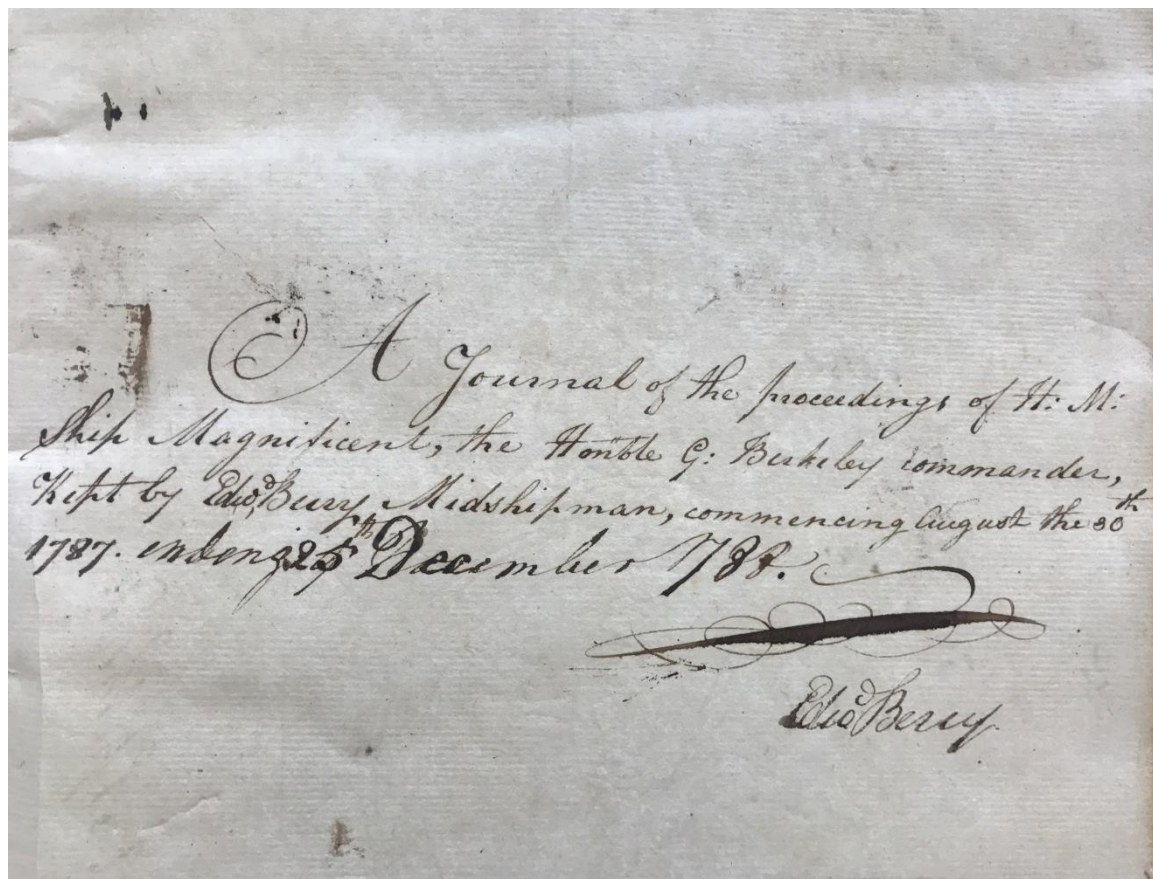 A Journal of the proceedings of H: M:
Ship Magnificent, the Honble G: Berkeley commander,
Kept by Edwd Berry Midshipman, commencing August the 30th
1787. ending 25th December 788.
Edwd Berry